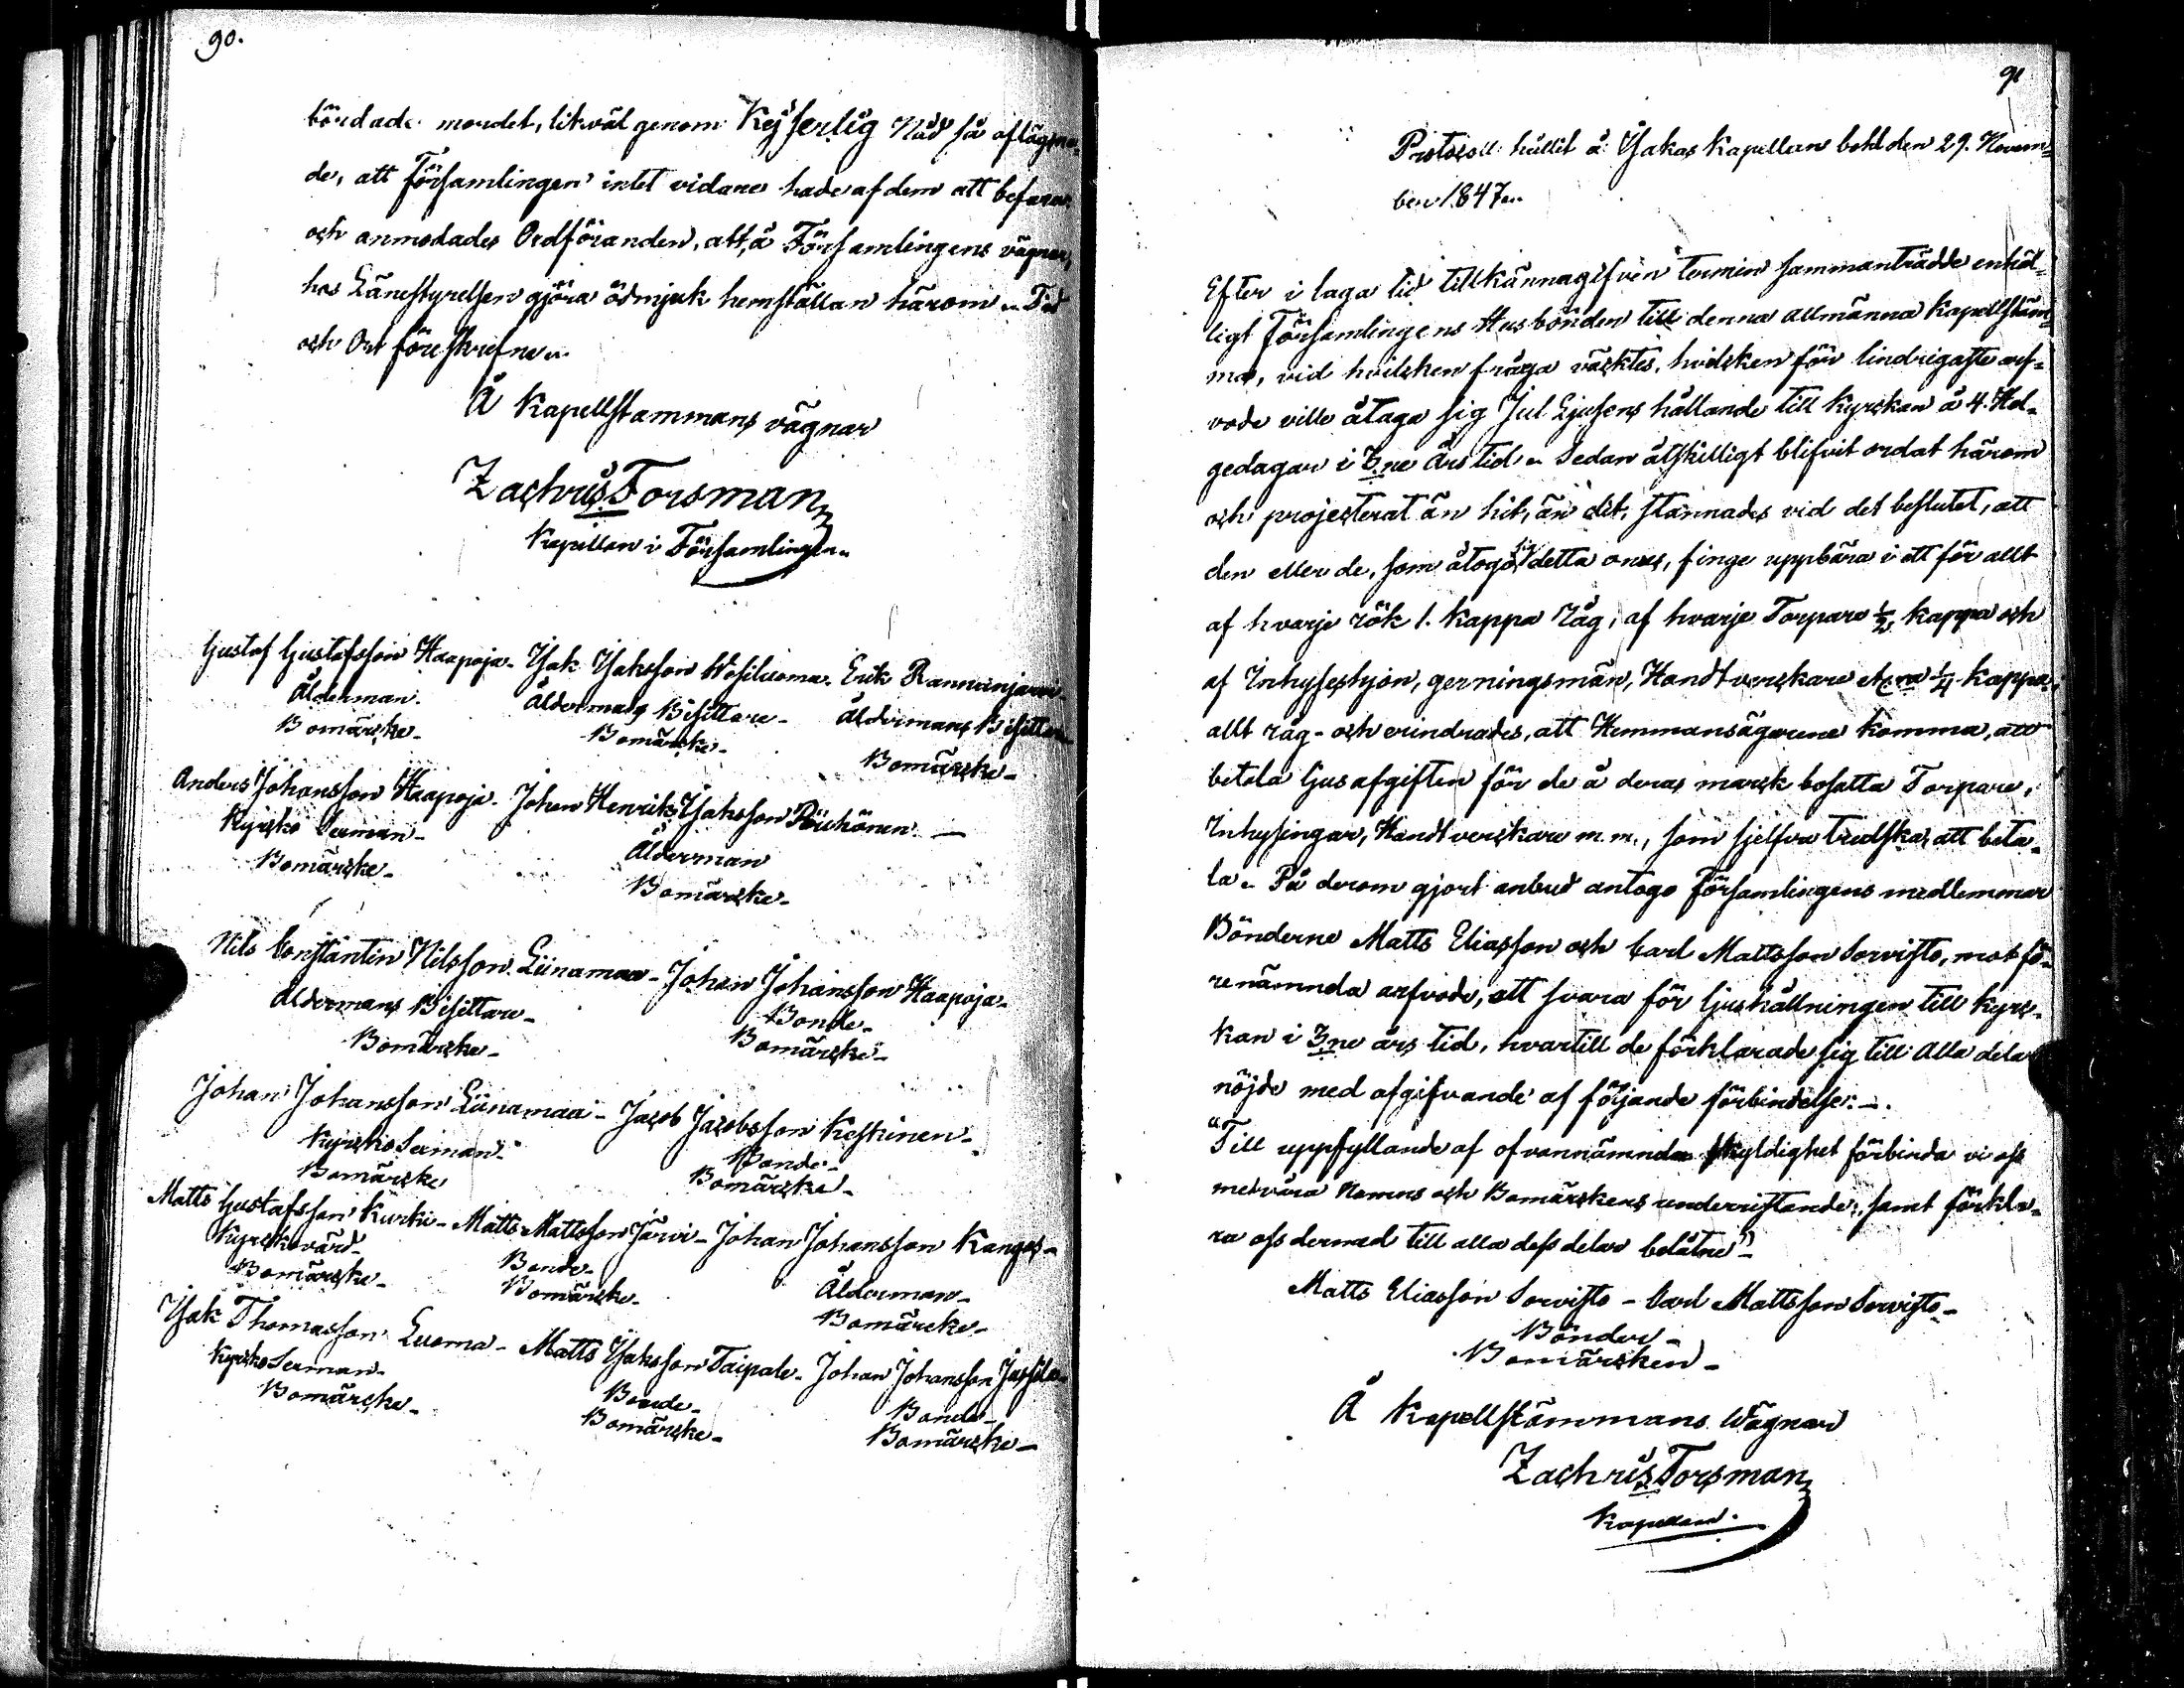 90.
bördade mordet, likväl genom Kejserlig Nåd så aflägsna-
de, att Församlingen intet vidare hade af dem att befara,
och anmodades Ordföranden, att, å Församlingens vägnar,
hos Länestyrelsen gjöra ödmjuk hemställan härom. Tid
och Ort föreskrefne.
Å Kapellstammans vägnar
Zachris Forsman
Kapellan i Församlingen.
Gustaf Gustafsson Haapoja - Isak Isaksson Wesiluoma - Erik Rannanjärvi -
Ålderman. Åldermans Bisittare - Åldermans Bisittare
Bomärcke - Bomärcke - Bomärcke -
Anders Johansson Haapoja - Johan Henrik Isaksson Pöuhönen -
Kyrcko Seeman - Ålderman
Bomärcke - Bomärcke -
Nils Constantin Nilsson Liinamaa - Johan Johansson Haapoja -
Åldermans Bisittare - Bonde -
Bomärcke - Bomärcke -
Johan Johansson Liinamaa - Jacob Jacobsson Keskinen -
Kyrcko Seeman - Bonde -
Bomärcke Bomärcke -
Matts Gustafsson Kurki - Matts Mattsson Järvi - Johan Johansson Kangas -
Kyrckovärd - Bonde - Ålderman -
Bomärcke - Bomärcke - Bomärcke -
Isak Thomasson Luoma - Matts Isaksson Taipale - Johan Johansson Jussila -
Kyrcko Seeman - Bonde - Bonde -
Bomärcke - Bomärcke - Bomärcke -
91
Protocoll hållit å Ylakas Kapellans bohl den 29. Novem-
ber 1847.
Efter i laga tid tillkännagifven termin sammanträdde enhäl-
ligt Församlingens Husbönder till denna allmänna Kapellstäm-
ma, vid hvilcken fråga väcktes, hvilcken för lindrigaste arf-
vode ville åtaga sig Jul Ljusens hållande till Kyrckan å 4. Hel-
gedagar i 3ne Års tid. Sedan åtskilligt blifvit ordat härom
och projecterat än hit, än dit, stannades vid det beslutet, att
den eller de, som åtogo sig detta onus, finge uppbära i ett för allt
af hvarje rök 1. Kappa Råg, af hvarje Torpare 1/2 kappa och
af Inhyseshjon, gerningsmän, Handtverckare etc:ra 1/4 kappa,
allt råg - och erindrades, att Hemmansägarene komma, att
betala ljusafgiften för de å deras marck bosatta Torpare,
Inhysingar, Handtverckare m. m., som sjelfva tredska, att beta-
la. På derom gjort anbud antogo Församlingens medlemmar
Bönderne Matts Eliasson och Carl Mattsson Sorvisto, mot fö-
renämnda arfvode, att svara för ljushållningen till Kyrc-
kan i 3ne års tid, hvartill de förklarade sig till alla delar
nöjde med afgifvande af följande förbindelse: -.
"Till uppfyllande af ofvannämnda skyldighet förbinda vi oss
med våra Namns och Bomärckens underristande, samt förkla-
ra oss dermed till alla dess delar belåtne" -
Matts Eliasson Sorvisto - Carl Mattsson Sorvisto -
Bönder -
Bomärcken -
Å Kapellstämmans Wägnar
Zachris Forsman
Kapellan.